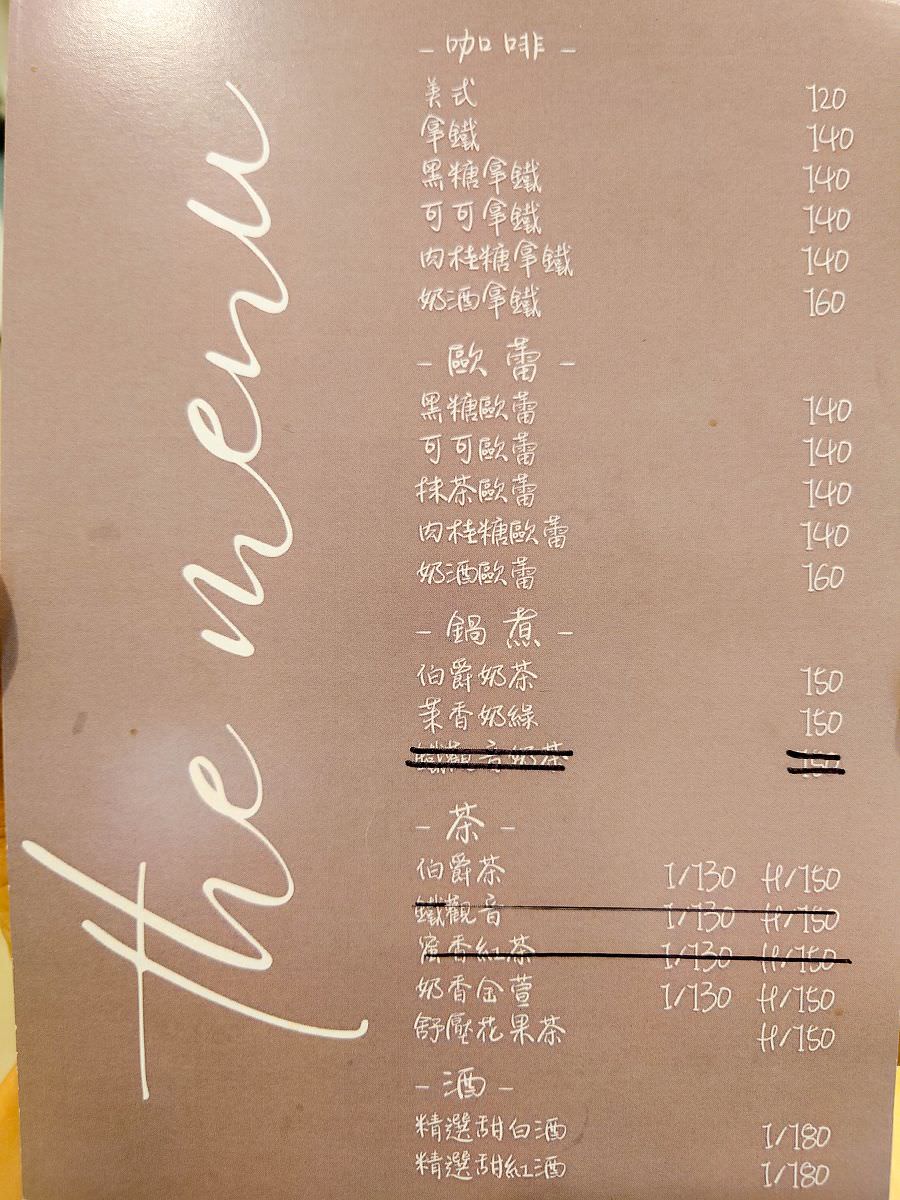 the menu
- 咖啡 -
美式 120
拿鐵 140
黑糖拿鐵 140
可可拿鐵 140
肉桂糖拿鐵 140
奶酒拿鐵 160
- 歐蕾 -
黑糖歐蕾 140
可可歐蕾 140
抹茶歐蕾 140
肉桂糖歐蕾 140
奶酒歐蕾 160
- 鍋煮 -
伯爵奶茶 150
茉香奶綠 150
鐵觀音奶茶 150
- 茶 -
伯爵茶 I/130 H/150
鐵觀音 I/130 H/150
蜜香紅茶 I/130 H/150
奶香金萱 I/130 H/150
舒壓花果茶 H/150
- 酒 -
精選甜白酒 I/180
精選甜紅酒 I/180